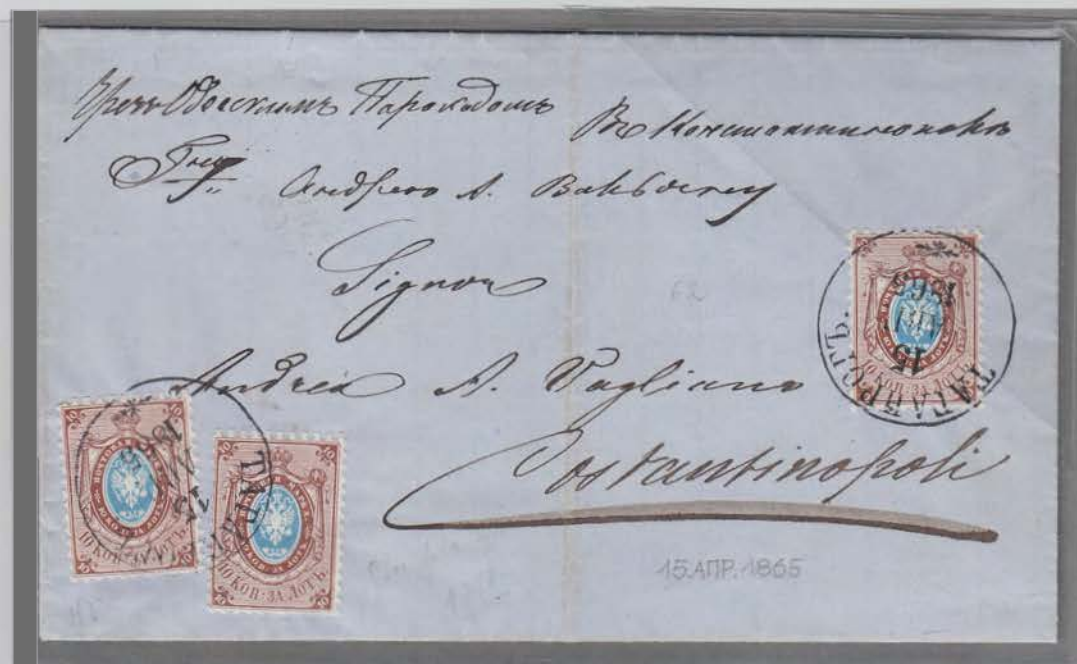 Чрезъ Одесскимъ Пароходомъ
Въ Константинополь
Андрею А. Вальяну
Signor
Andrea A. Vagliano
Costantinopoli
15
1865
ТАГАНРОГЪ.
10 КОП: ЗА ЛОТЪ
15
10 КОП: ЗА ЛОТЪ
10 КОП: ЗА ЛОТЪ
15.АПР.1865
62